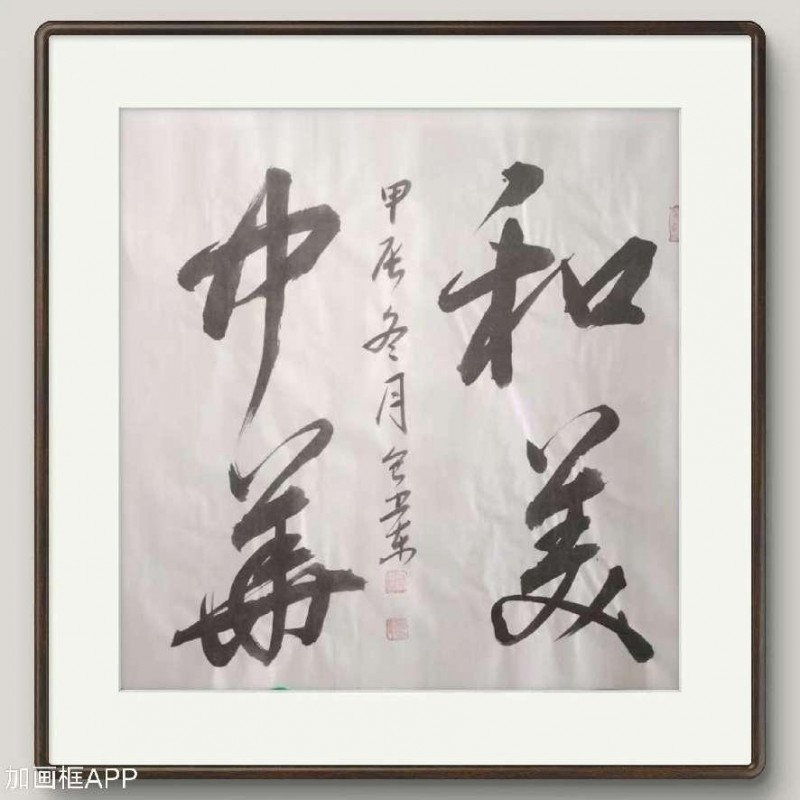 和美
中華
甲辰冬月卫东
加画框APP